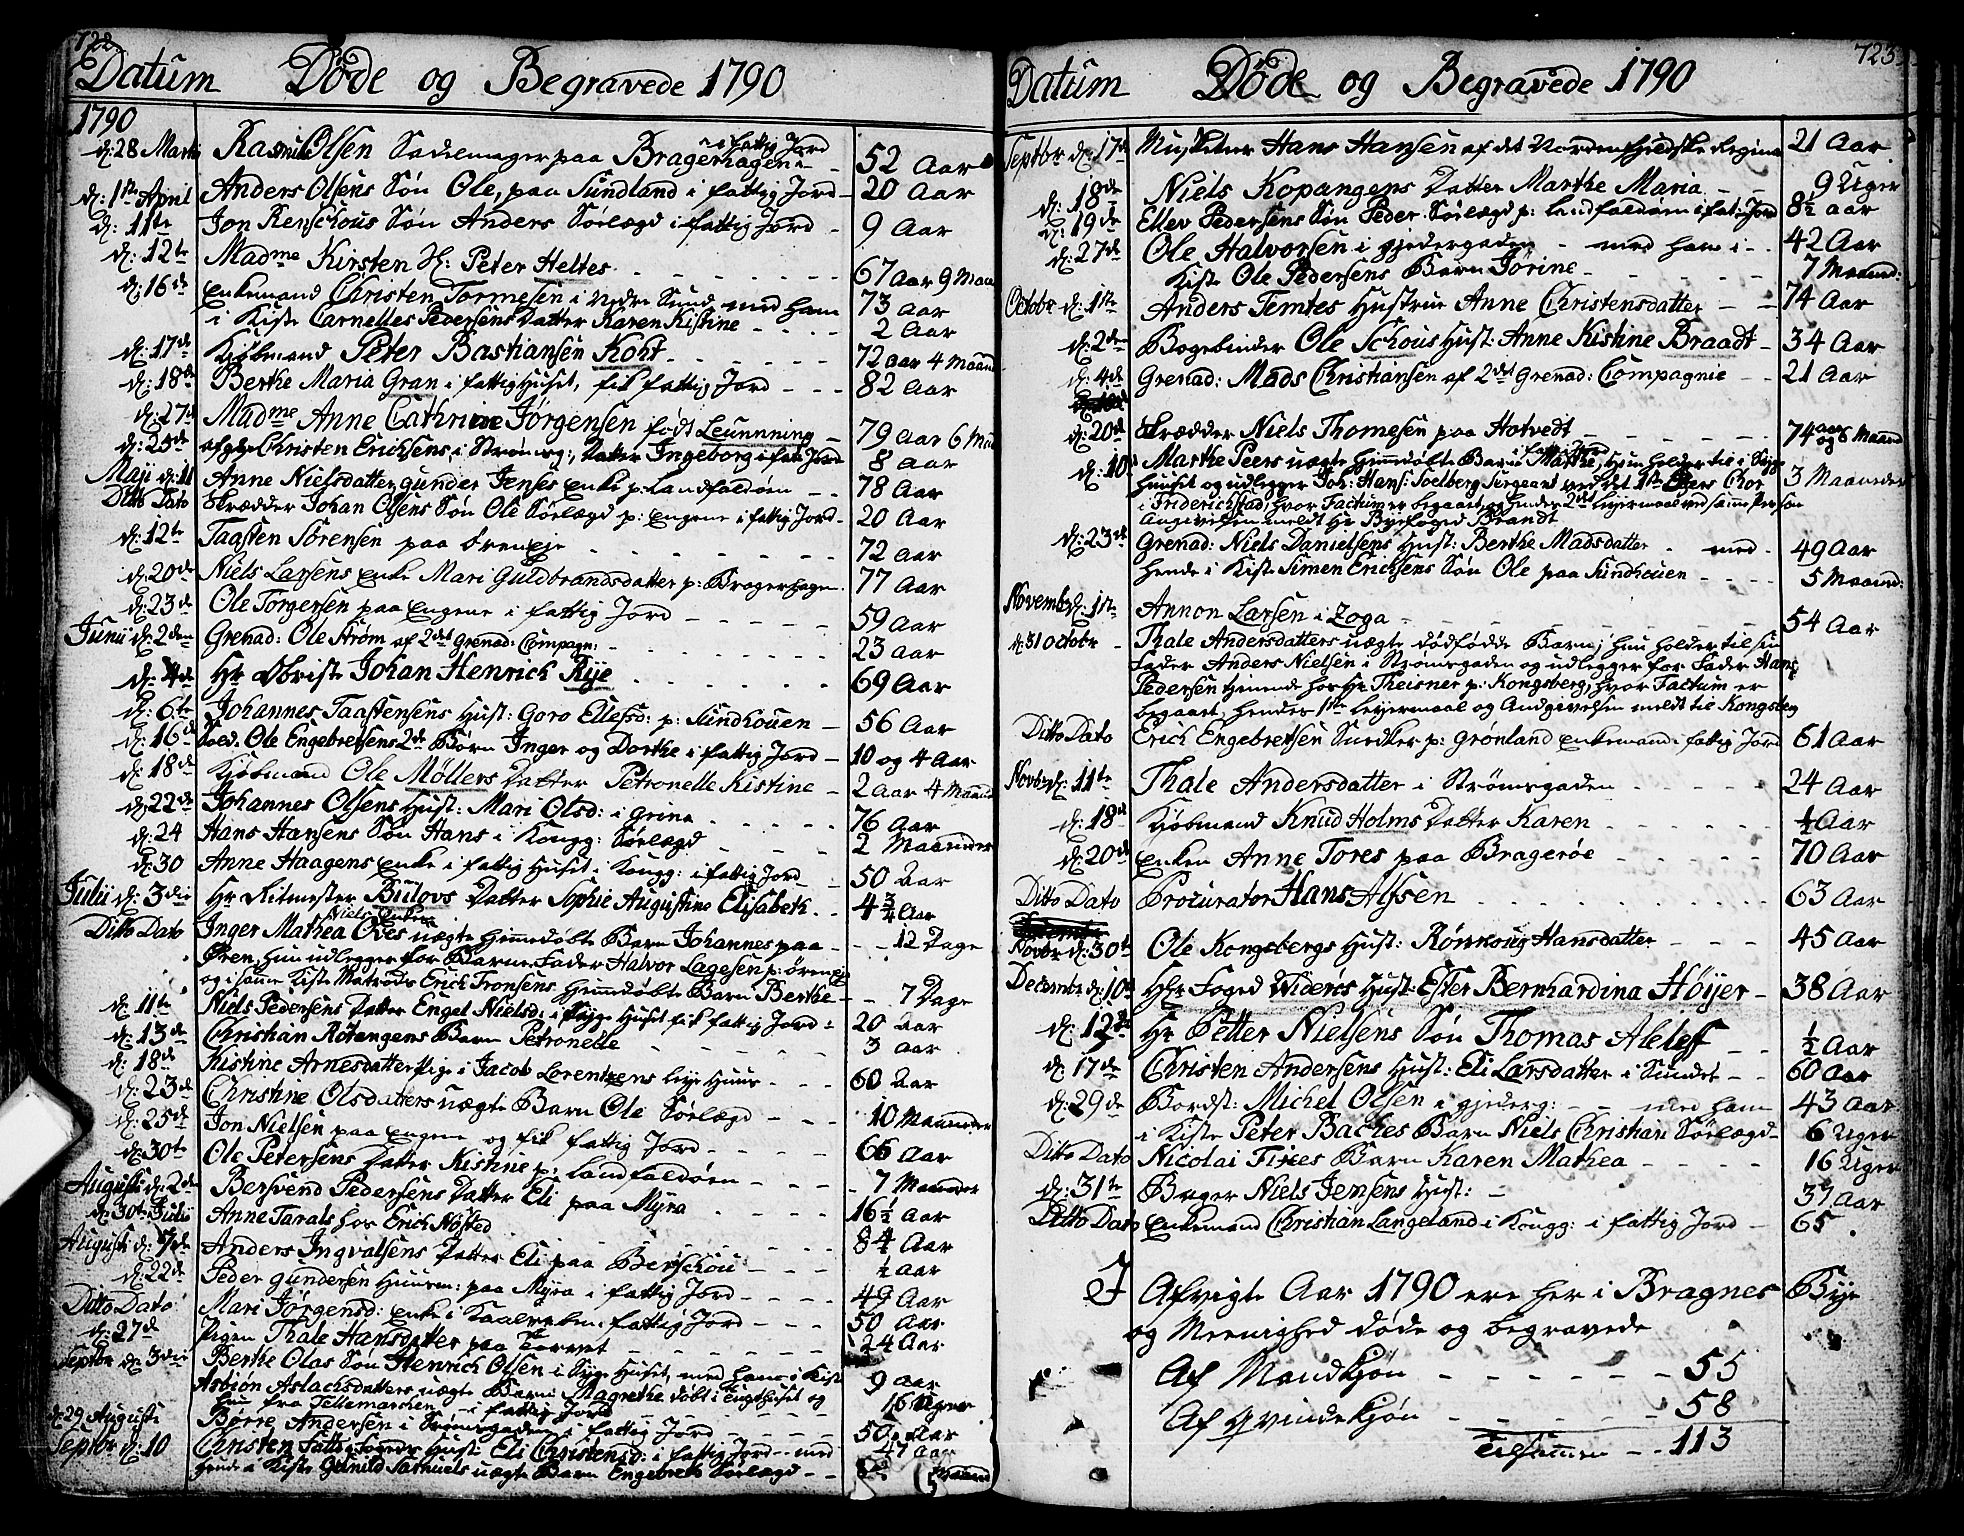 722.
Datum Døde og Begravede 1790
1790
d: 28 Martii Rasmus Olsen Sadelmager paa Bragerhagen i fattig Jord 52 Aar
d: 1ste April Anders Olsens Søn Ole, paa Sundland i fattig Jord 20 Aar
d: 11te Jon Renschous Søn Anders Sørlægd i fattig Jord 9 Aar
d: 12te Madme Kirsten Sl: Peter Heltes 67 Aar 9 Maan
d: 16de Enkemand Christen Tormesen i Nedre Sund med ham 73 Aar
i Kiste Carnelles Pedersens Datter Karen Kistine 2 Aar
d: 17de Kjøbmand Peter Bastiansen Koht 72 aar 4 Maan
d: 18de Berthe Maria Gran i fattig Huset, fik fattig Jord 82 Aar
d: 27de Madme Anne Cathrine Jørgensen født Leunnning 79 Aar 6 Maa
d: 25de afgde Christen Erichsens i Strømsg:, Datter Ingeborg i fat: Jord 8 Aar
Maji d: 11 Anne Nielsdatter, Gunder Jenses Enke p: Landfaldøen 78 Aar
Ditto Dato Skrædder Johan Olsens Søn Ole Sørlægd p: Engene i fattig Jord 20 Aar
d: 12te Taasten Sørensen paa ØrenEje 72 Aar
d: 20de Niels Larsens Enke Mari Guldbrandsdatter p: Bragerhagen 77 Aar
d: 23de Ole Torgersen paa Engene i fattig Jord 59 Aar
Junii d: 2den Grenad: Ole Strøm af 2det Grenad: Compagn: 23 Aar
d: 4de Hr Obriste Johan Henrich Rye 69 Aar
d: 6te Johannes Taastensens Hust: Goro Ellefsd: p: Sundhouen 56 Aar
d: 16de Sold. Ole Engebretsens 2de Børn Inger og Dorthe i fattig Jord 10 og 4 Aar
d: 18de Kjøbmand Ole Møllers Datter Petronelle Kistine 2 Aar 4 Maan
d: 22de Johannes Olsens Hust: Mari Olsd: i Grina 76 Aar
d: 24 Hans Hansens Søn Hans i Kongg: Sørlægd 2 Maaneder
d: 30 Anne Haagens Enke i fattig Huset i Kongg: i fattig Jord 50 Aar
Julii d: 3die Hr Ritmester Bülovs Datter Sophie Augustine Elisabeth 4 3/4 Aar
Ditto Dato Inger Mathea Oves uægte Hiemedøbte Barn Johannes paa 12 Dage
Øren, hun udlegger for Barne Fader Halvor Lagesen p: ørenEje
og i samme Kiste Matrods Erich Tronsens Hjemmdøbte Barn Berthe 7 Dage
d: 11te Niels Pedersens Datter Engel Nielsd: i Syge Huset fik fattig Jord 20 Aar
d: 13de Christian Røtangens Barn Petronelle 3 Aar
d: 18de Kistine Arnesdatter Pige i Jacob Lorentzens leye Huus 60 Aar
d: 23de Christine Olsdatters uægte Barn Ole Sørlægd 10 Maaneder
d: 25de Jon Nielsen paa Engene og fik fattig Jord 66 Aar
d: 30te Ole Petersens Datter Kistine p: Landfaldøen 7 Maaneder
Augusti d: 2de Bersvend Pedersens Datter Eli paa Myra 16 1/2 Aar
d: 30te Julii Anne Tarals hos Erich Nøsted 84 Aar
Augusti d: 7de Anders Ingvalsens Datter Eli paa Berschou 1/2 Aar
d: 22de Peder Gundersen Huusm: paa Myra i fattig Jord 49 Aar
Ditto Dato Mari Jørgensd: Enke i Kaalrøken: fattig Jord 50 Aar
d: 27de Pigen Thale Hansdatter paa Torvet 24 Aar
Septbr d: 3die Berthe Olas Søn Henrich Olsen i Syge Huset, med ham i Kist 9 Aar
Asbiøn Aslachsdatters uægte Barn: Magrethe døbt i Tugthuset og 16 Uger
Hun fra Tellemarchen i fattig Jord
d: 29 Augusti Børre Andersen i Strømsgaden i fattig Jord 50 Aar
Septbr d: 10 Christen Fattig Fogeds Hust: Eli Christensd: i fattig Jord med 47 Aar
hende i Kiste Gunild Samuels uægte Barn Engebreth Sørlægd 5 Maaned
723
Datum Døde og Begravede 1790
Septbr d: 17de Musketeer Hans Hansen af det Nordenfjeldske Regim 21 Aar
d: 18de Niels Kopangens Datter Marthe Maria 9 Uger
d: 19de Ellev Pedersens Søn Peder Sørlægd p: Landfaldøen i fat: Jord 8 1/2 Aar
d: 27de Ole Halvorsen i gjedergaden med ham i 42 Aar
Kiste Ole Pedersens Barn Jørine 7 Maaned:
Octobr d: 1ste Anders Temtes Hustrue Anne Christensdatter 74 Aar
d: 2den Bogebinder Ole Schous Hust: Anne Kistine Braadt 34 Aar
d: 4de Grenad: Mads Christiansen af 2det Grenad: Compagnie 21 Aar
d: 20de Skrædder Niels Thomesen paa Hotvedt 74 aar og 6 Maaned
d: 10 Marthe Peers uægte Hiemmdøbte Barn Marthe i fattig Jord, Hun holder til i Syge 3 Maaneder
Huuset og udlegger Joh: Hans: Soelberg Sergeant ved det 1ste Chor
i Friderichstad, hvor Factum er begaaet, og hendes 2det Leyermaal ved samme Person
Angivelsen meldt Hr Byefoged Brandt
d: 23de Grenad: Niels Danielsens Hust: Berthe Madsdatter med 49 Aar
hende i Kiste Simen Erichsens Søn Ole paa Sundhouen 5 Maaned:
Novembr d: 1ste Annon Larsen i Zoga 54 Aar
d: 31 Octobr Thale Andersdatters uægte dødfødde Barn, hun holder til sin
Fader Anders Nielsen i Strømsgaden og udlegger for Fader Hans
Pedersen tjenende hos Hr Theisner p: Kongsberg, hvor Factum er
begaaet, hendes 1ste Leyermaal og Andgivelsen meldt til Kongsberg
Ditto Dato Erich Engebretsen Snedker p: Grønland Enkemand i fattig Jord 61 Aar
Novbr d: 11te Thale Andersdatter i Strømsgaden 24 Aar
d: 18de Kjøbmand Knud Holms Datter Karen 1/2 Aar
d: 20de Enken Anne Tores paa Bragerøe 70 Aar
Ditto Dato Procurator Hans Alssen 63 Aar
Novbr d: 30te Ole Kongsbergs Hust: Rønnoug Hansdatter 45 Aar
Decembr d: 10de Hr Foged Widerøes Hust: Ester Bernhardina Höijer 38 Aar
d: 12te Hr Petter Nielsens Søn Thomas Aleleff 1/2 Aar
d: 17de Christen Andersens Hust: Eli Larsdatter i Sundet 60 Aar
d: 29de Bordst: Michel Olsen i gjederg: med ham 43 Aar
i Kiste Peter Baches Barn Niels Christian Sørlægd 6 Uger
Ditto Dato Nicolai Fixes Barn Karen Mathea 16 Uger
d: 31te Bager Niels Jensens Hust: 37 Aar
Ditto Dato Enkemand Christian Langeland i Kongg: i fattig Jord 65
I Afvigte Aar 1790 ere her i Bragnes Bye
og Meenighed døde og begravede
Af Mandkjøn 55
Af Qvindekjøn 58
Tilsammen 113